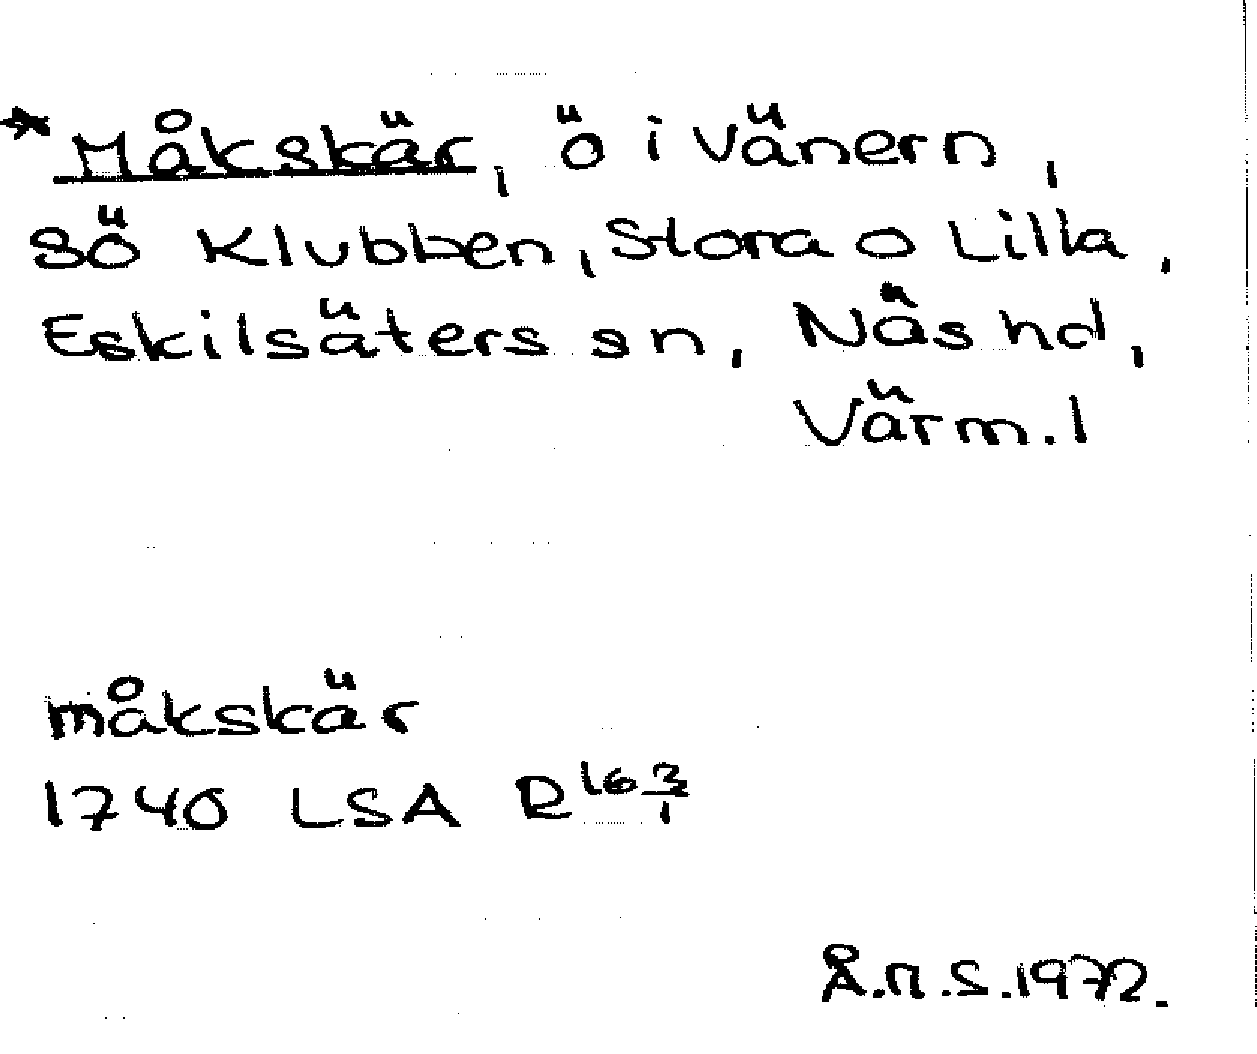 *Måkskär, ö i Vänern,
sö Klubben, Stora o Lilla,
Eskilsäters sn, Näs hd,
Värm. l
måkskär
1740 LSA R 16 3/1
Å.M.S.1972.